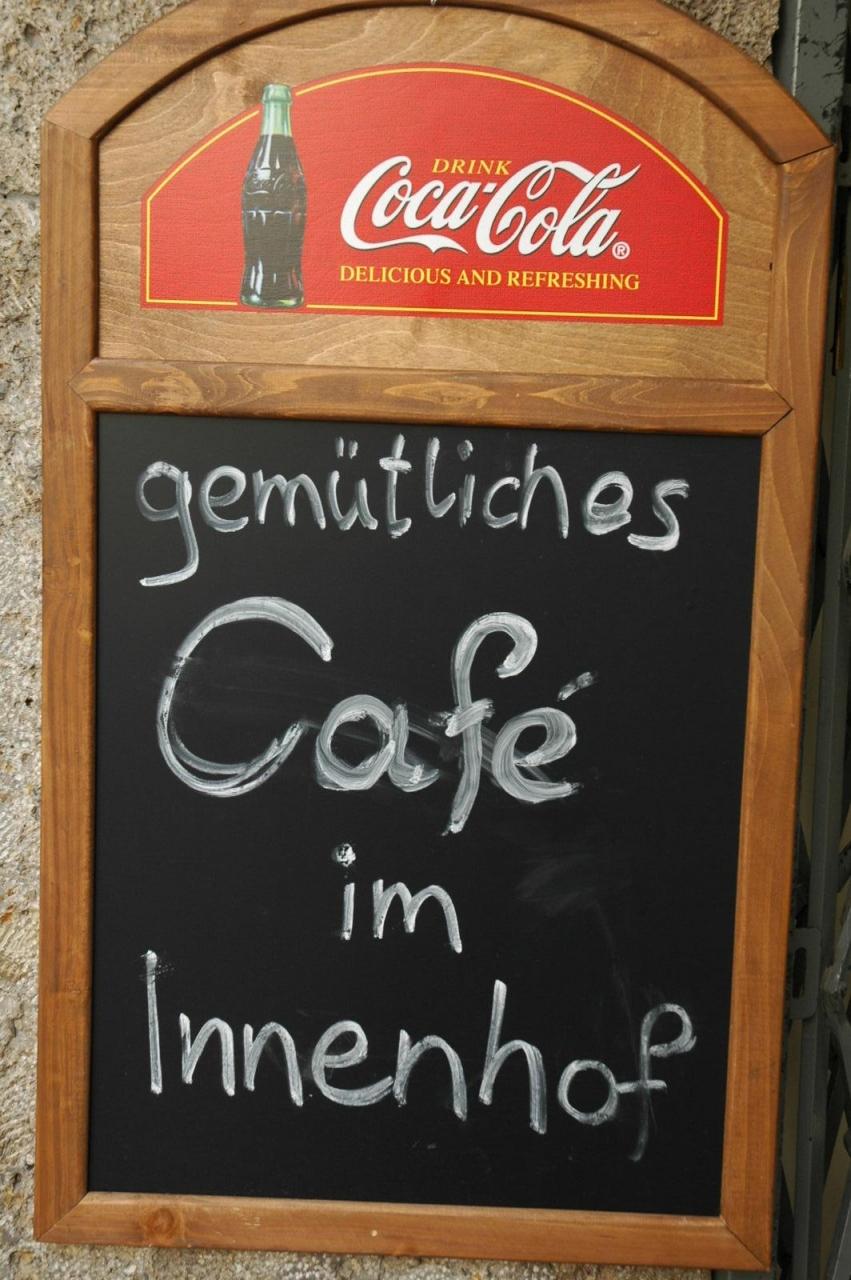 DRINK
Coca-Cola®
DELICIOUS AND REFRESHING
gemütliches
Café
im
Innenhof